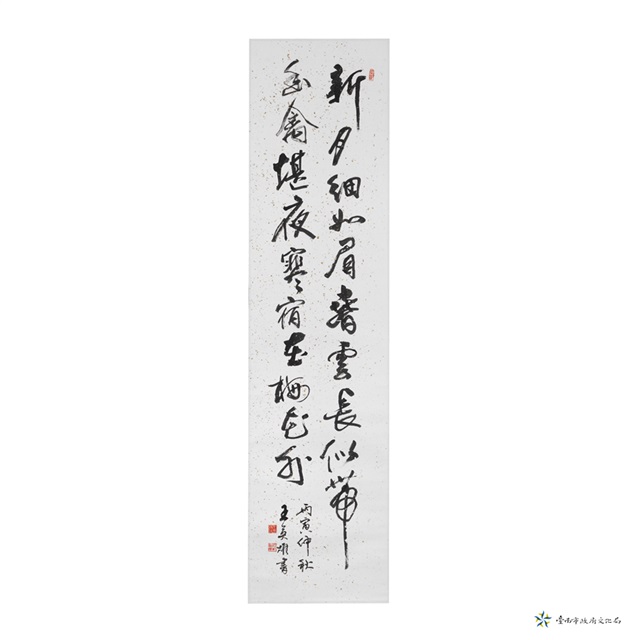 新月細如眉雲長似帶
幽禽堪夜寒宿在梅花外
丙寅仲秋
王英雄書
臺南市政府文化局